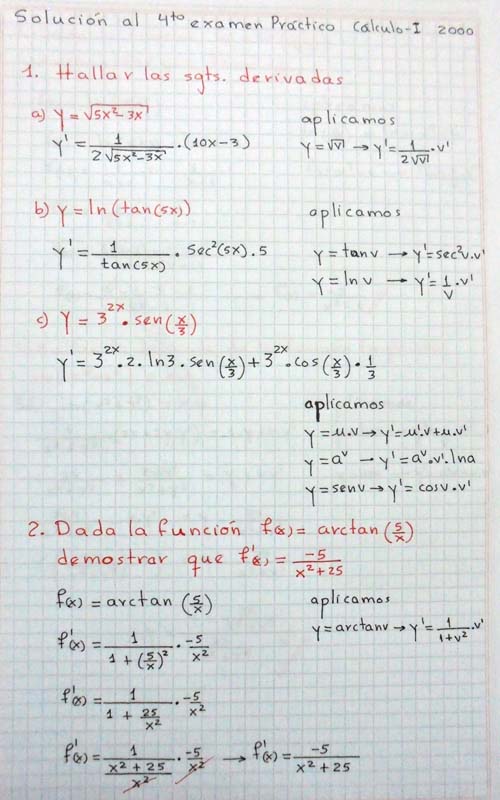 Solución al 4to examen Práctico Cálculo-I 2000
1. Hallar las sgts. derivadas
a) y = √(5x²-3x) aplicamos
y' = 1/(2√(5x²-3x)) · (10x-3) y = √v → y' = 1/(2√v) · v'
b) y = ln(tan(5x)) aplicamos
y' = 1/tan(5x) · sec²(5x) · 5 y = tanv → y' = sec²v·v'
y = lnv → y' = 1/v · v'
c) y = 3^(2x) · sen(x/3)
y' = 3^(2x) · 2 · ln3 · sen(x/3) + 3^(2x) · cos(x/3) · 1/3
aplicamos
y = μ·v → y' = μ'·v + μ·v'
y = a^v → y' = a^v · v' · lna
y = senv → y' = cosv·v'
2. Dada la función f(x) = arctan(5/x)
demostrar que f'(x) = -5/(x²+25)
f(x) = arctan(5/x) aplicamos
y = arctanv → y' = 1/(1+v²) · v'
f'(x) = 1/(1+(5/x)²) · -5/x²
f'(x) = 1/(1 + 25/x²) · -5/x²
f'(x) = 1/((x²+25)/x²) · -5/x² → f'(x) = -5/(x²+25)